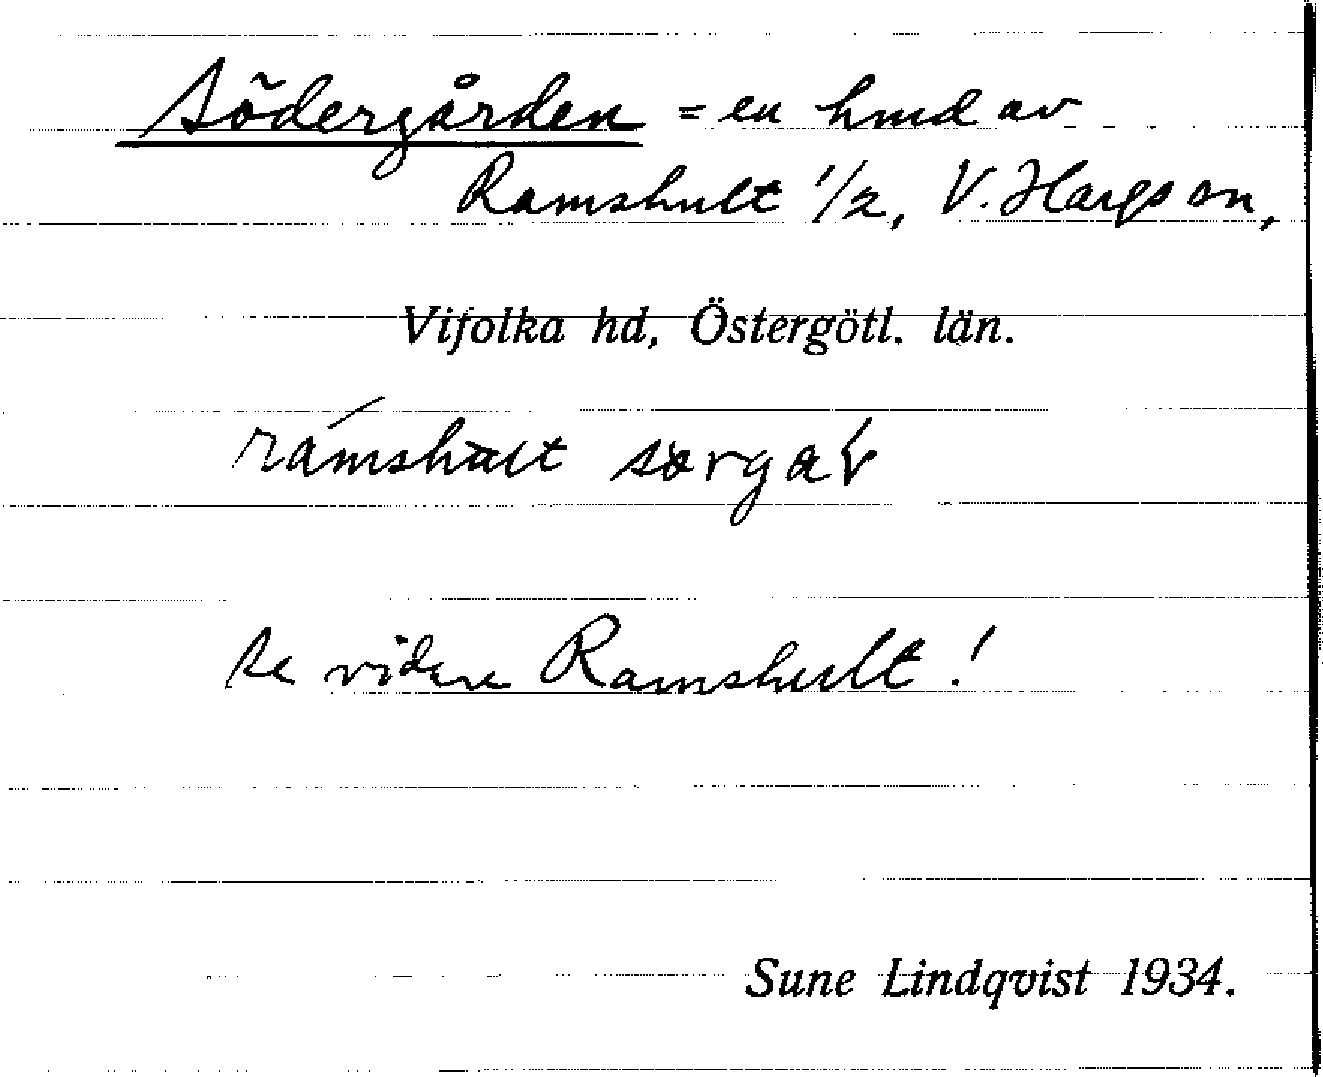 Södergården = en hmd av
Ramshult 1/2, V. Hargs sn,
Vifolka hd, Östergötl. län.
rámshult sørgaŕ
se vidare Ramshult!
Sune Lindqvist 1934.